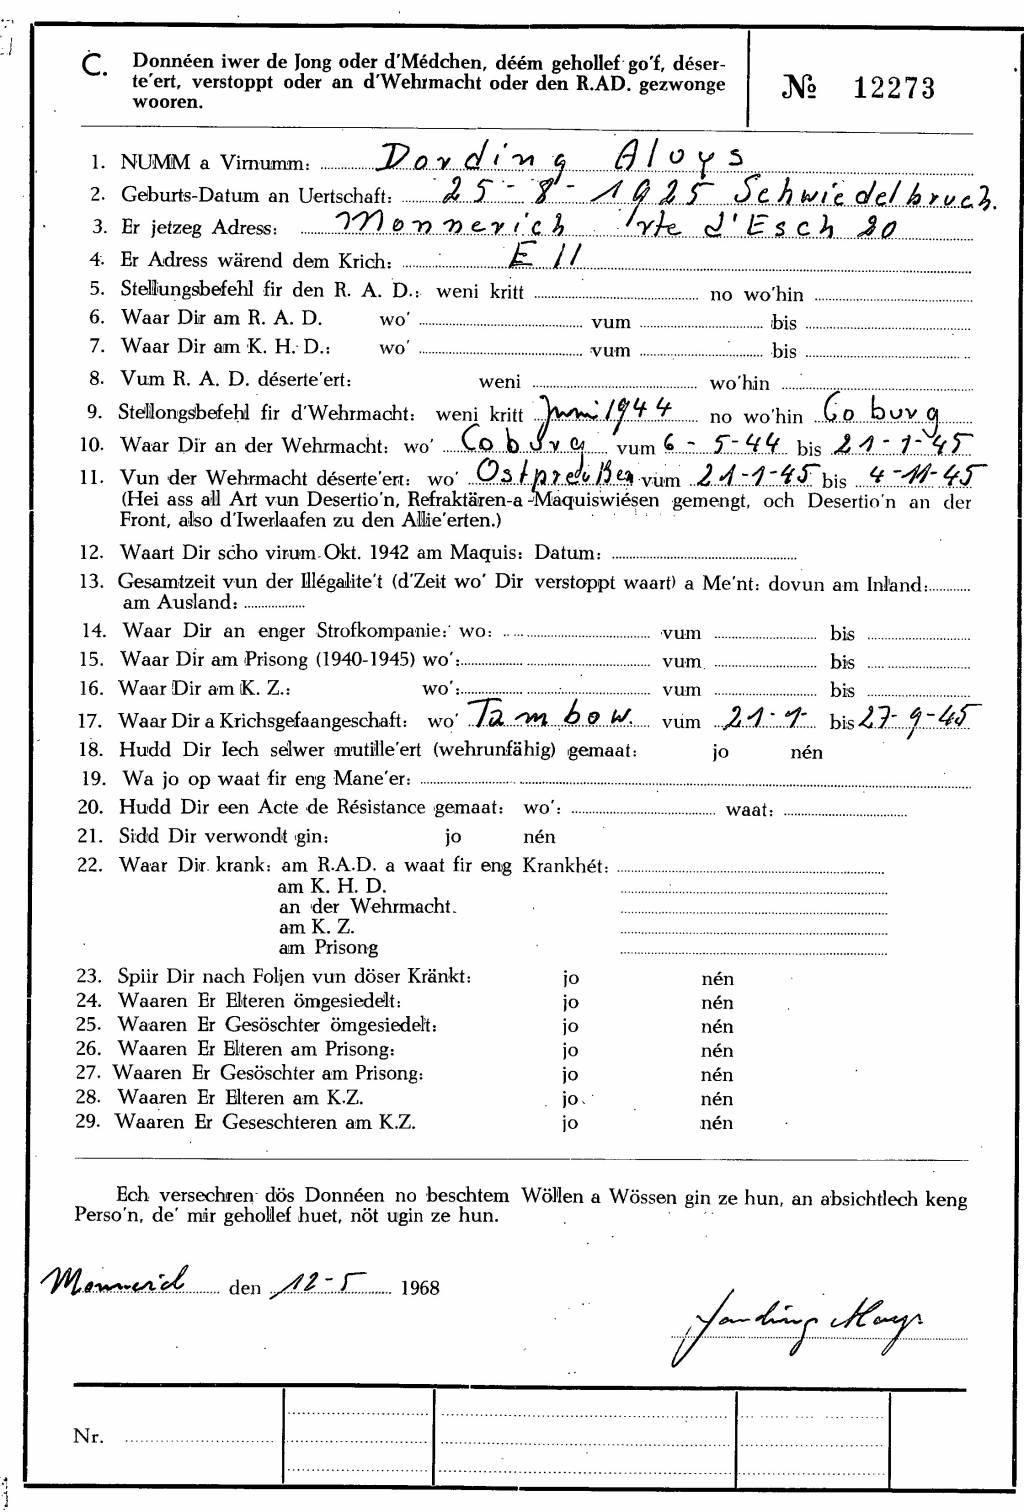 C. Donnéen iwer de Jong oder d'Médchen, déém gehollef go'f, déser-
te'ert, verstoppt oder an d'Wehrmacht oder den R.AD. gezwonge
wooren.
№ 12273
1. NUMM a Virnumm: Dording Aloys
2. Geburts-Datum an Uertschaft: 25-8-1925 Schwiedelbruch.
3. Er jetzeg Adress: Monnerich rte d'Esch 20
4. Er Adress wärend dem Krich: Ell
5. Stellungsbefehl fir den R. A. D.: weni kritt no wo'hin
6. Waar Dir am R. A. D. wo' vum bis
7. Waar Dir am K. H. D.: wo' vum bis
8. Vum R. A. D. déserte'ert: weni wo'hin
9. Stellongsbefehl fir d'Wehrmacht: weni kritt Juni 1944 no wo'hin Coburg
10. Waar Dir an der Wehrmacht: wo' Coburg vum 6-5-44 bis 21-1-45
11. Vun der Wehrmacht déserte'ert: wo' Ostpreußen vum 21-1-45 bis 4-11-45
(Hei ass all Art vun Desertio'n, Refraktären-a-Maquiswiésen gemengt, och Desertio'n an der
Front, also d'Iwerlaafen zu den Allie'erten.)
12. Waart Dir scho virum Okt. 1942 am Maquis: Datum:
13. Gesamtzeit vun der Illégalite't (d'Zeit wo' Dir verstoppt waart) a Me'nt: dovun am Inland:
am Ausland:
14. Waar Dir an enger Strofkompanie: wo: vum bis
15. Waar Dir am Prisong (1940-1945) wo': vum bis
16. Waar Dir am K. Z.: wo': vum bis
17. Waar Dir a Krichsgefaangeschaft: wo' Tambow. vum 21-1- bis 27-9-45
18. Hudd Dir Iech selwer mutille'ert (wehrunfähig) gemaat: jo nén
19. Wa jo op waat fir eng Mane'er:
20. Hudd Dir een Acte de Résistance gemaat: wo': waat:
21. Sidd Dir verwondt gin: jo nén
22. Waar Dir krank: am R.A.D. a waat fir eng Krankhét:
am K. H. D.
an der Wehrmacht.
am K. Z.
am Prisong
23. Spiir Dir nach Foljen vun döser Kränkt: jo nén
24. Waaren Er Elteren ömgesiedelt: jo nén
25. Waaren Er Gesöschter ömgesiedelt: jo nén
26. Waaren Er Elteren am Prisong: jo nén
27. Waaren Er Gesöschter am Prisong: jo nén
28. Waaren Er Elteren am K.Z. jo nén
29. Waaren Er Geseschteren am K.Z. jo nén
Ech versechren dös Donnéen no beschtem Wöllen a Wössen gin ze hun, an absichtlech keng
Perso'n, de' mir gehollef huet, nöt ugin ze hun.
Monnerich den 12-5 1968
Dording Aloys
Nr.